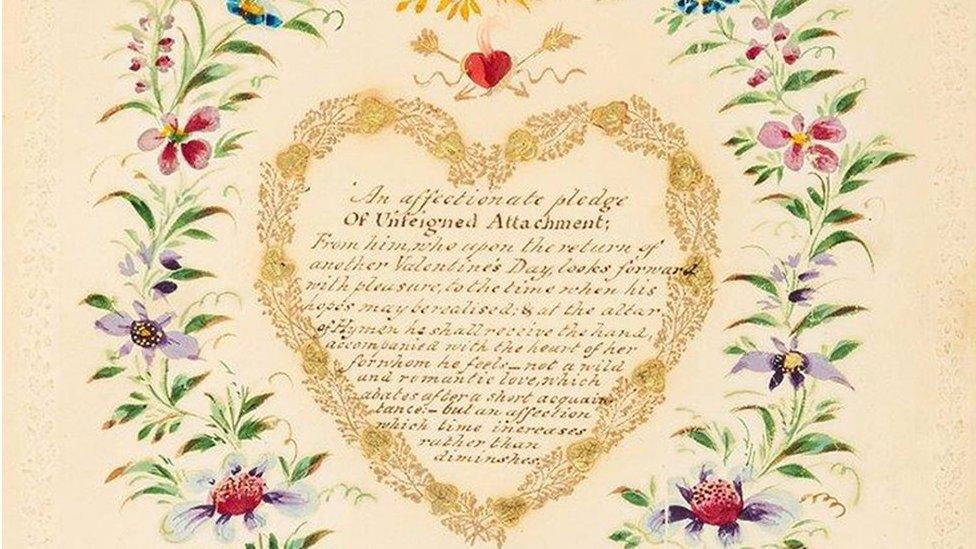 An affectionate pledge
Of Unfeigned Attachment;
From him, who upon the return of
another Valentine's Day, looks forward
with pleasure, to the time when his
hopes may be realised; & at the altar
of Hymen he shall receive the hand,
accompanied with the heart of her
for whom he feels - not a wild
and romantic love, which
abates after a short acquain
tance - but an affection
which time increases
rather than
diminshes.